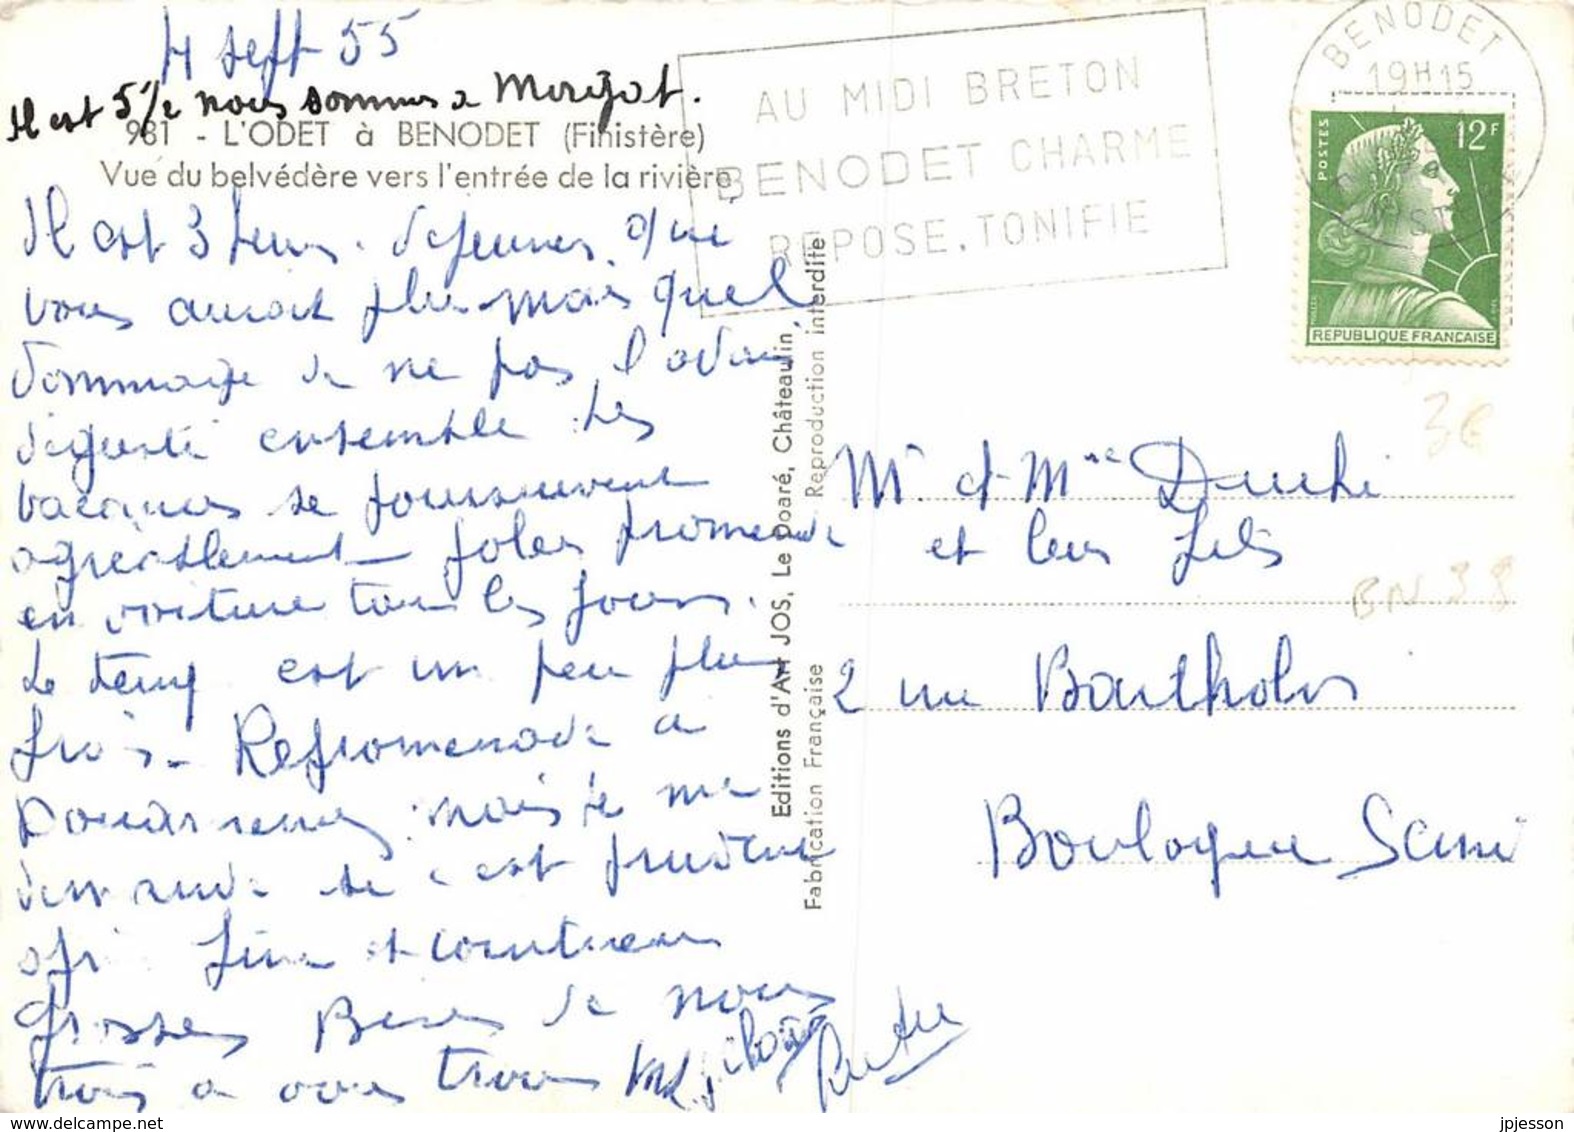 4 sept 55
Il est 5 1/2 nous sommes a
981 - L'ODET à BENODET (Finistère)
Vue du belvédère vers l'entrée de la rivière
Il est 3 heures. déjeuner que
vous auroit plu mais quel
dommage de ne pas l'avoir
dégusté ensemble les
vacances se poursuivent
agréablement jolies promenade
en voiture tous les jours.
Le temp est un peu plus
frois - Repromenade a
Douarnenez mais je me
demande si c est prudent
et contineus
grosses Bises de nous
trois a vous trois
AU MIDI BRETON
BENODET CHARME
REPOSE. TONIFIE
BENODET
19H15
POSTES
12F
REPUBLIQUE FRANÇAISE
Editions d'Art JOS, Le Doaré, Châteaulin
Fabrication Française
Reproduction interdite
3€
Mr et Mme
et leur fils
BN 38
2 rue Bartholdi
Boulogne Seine
jpjesson